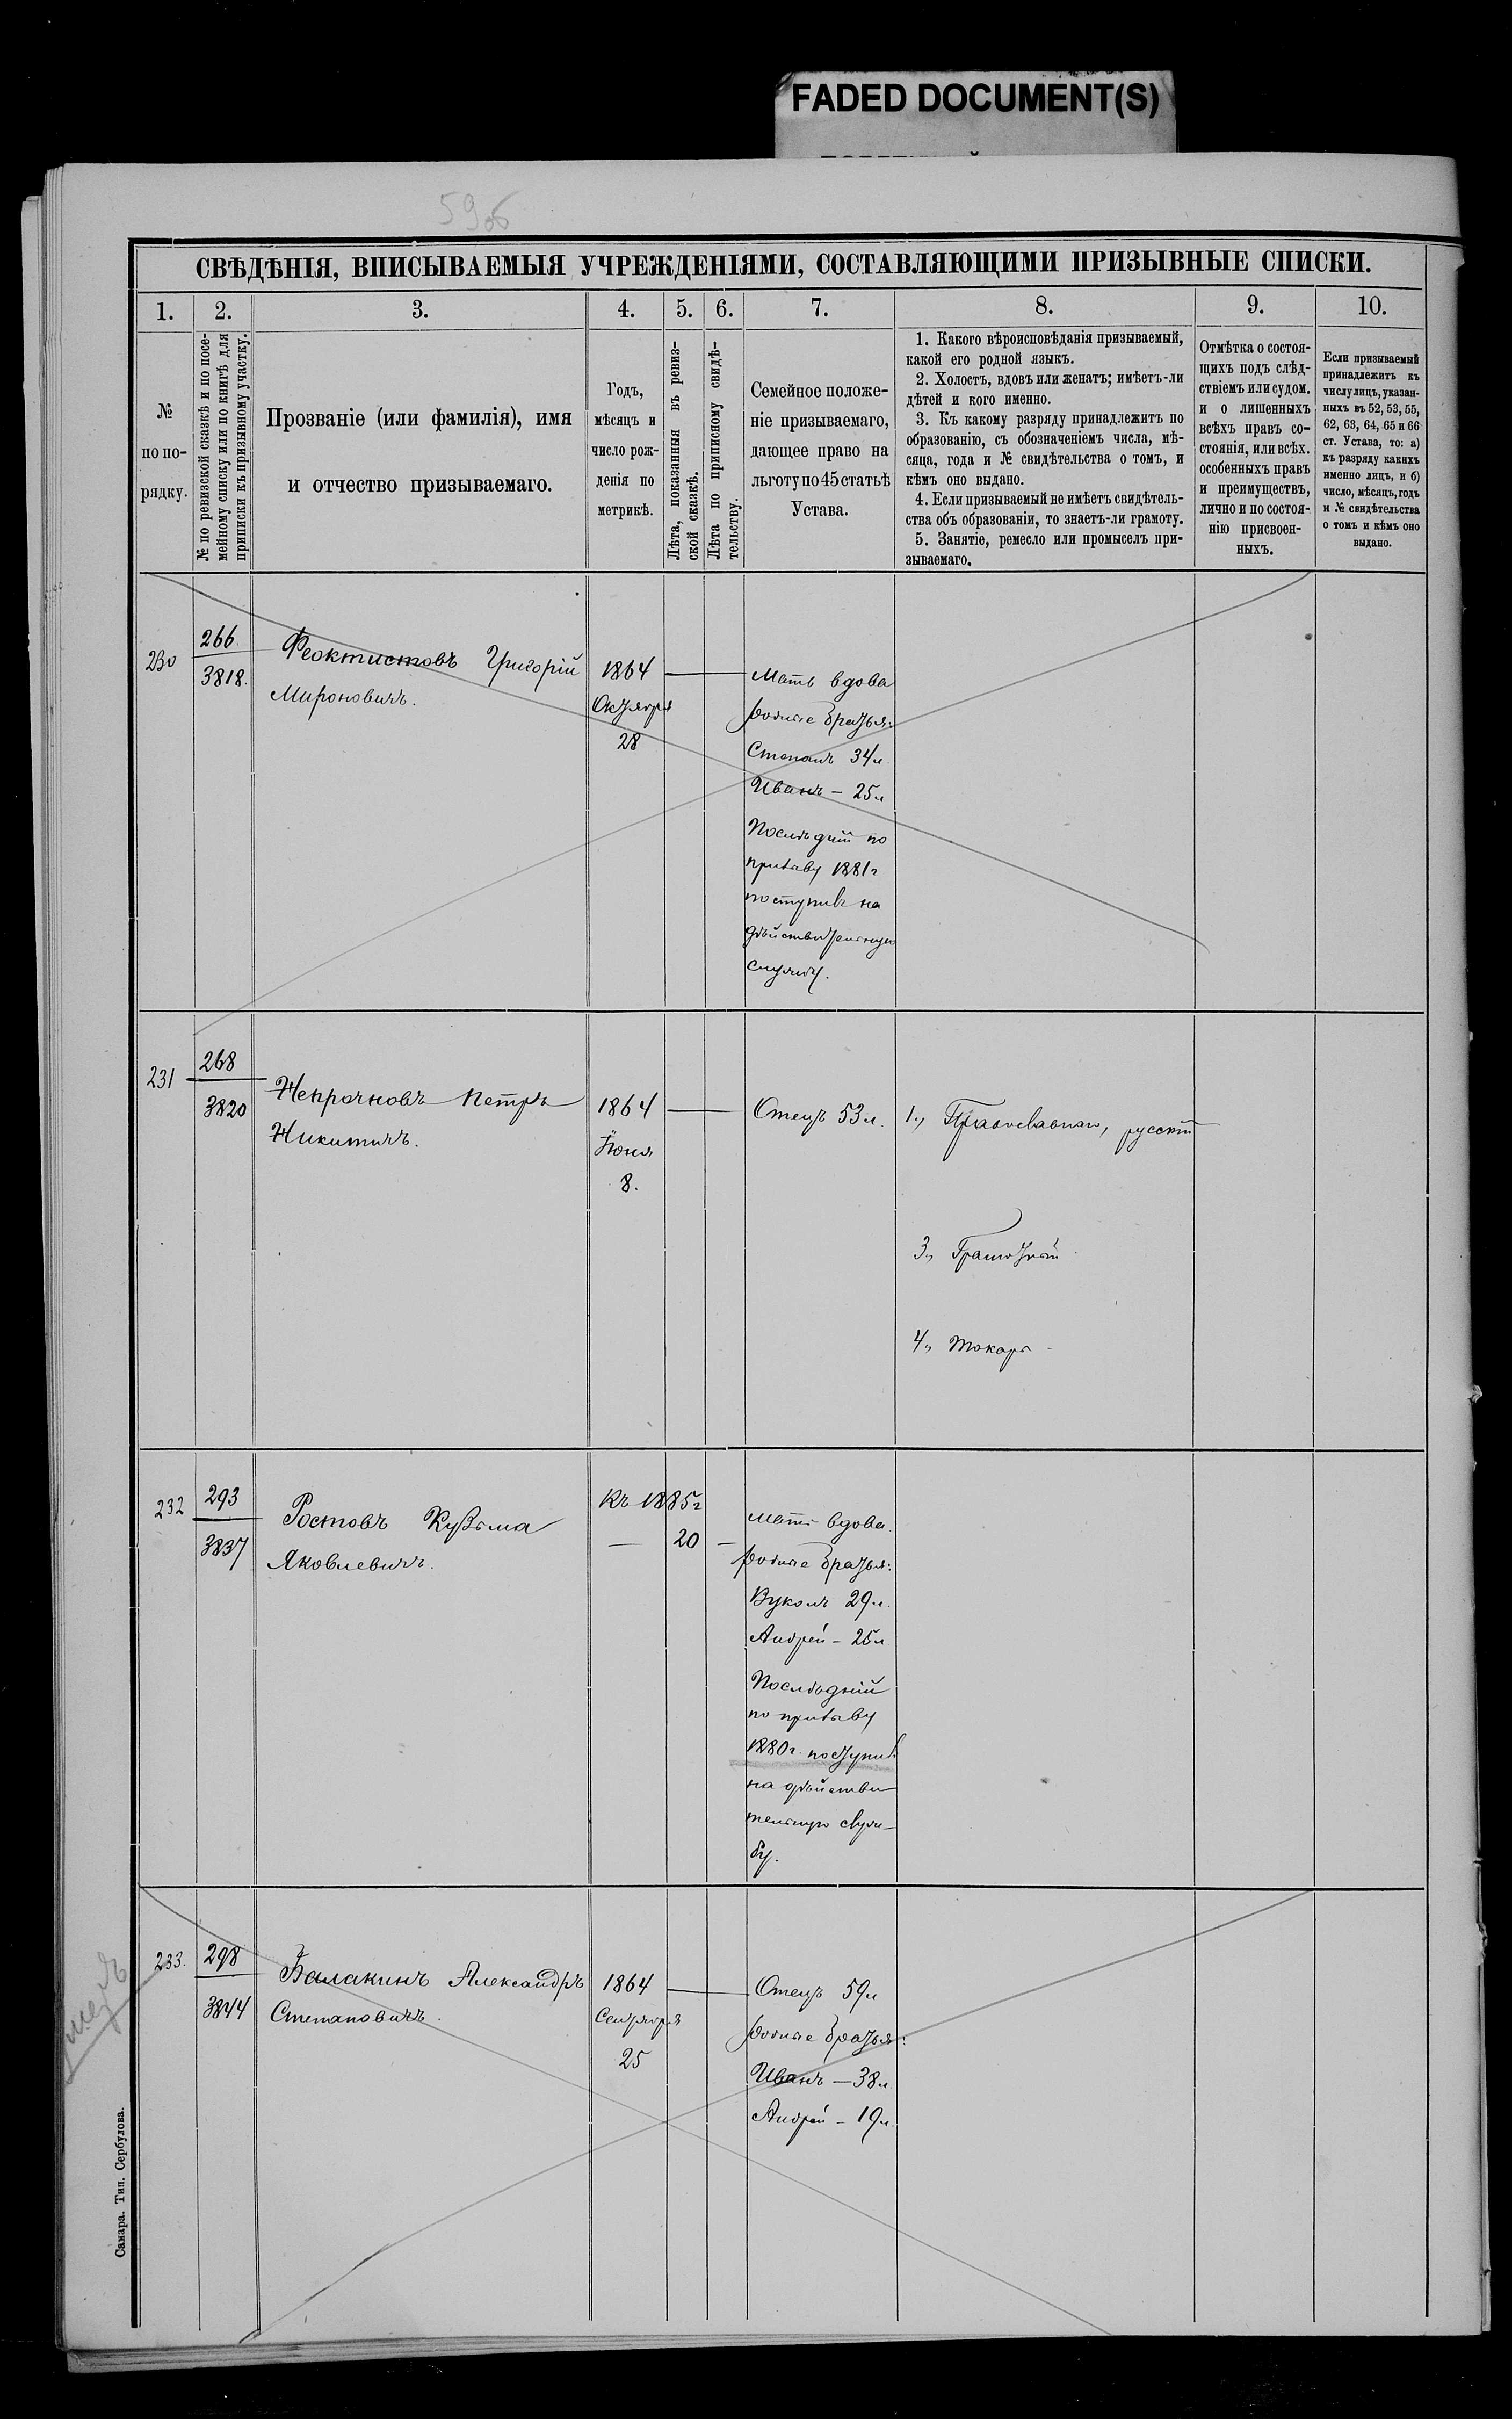 FADED DOCUMENT(S)
59об
СВѢДѢНІЯ, ВПИСЫВАЕМЫЯ УЧРЕЖДЕНІЯМИ, СОСТАВЛЯЮЩИМИ ПРИЗЫВНЫЕ СПИСКИ.
1. 2. 3. 4. 5. 6. 7. 8. 9. 10.
№
по по-
рядку.
№ по ревизской сказкѣ и по посе-
мейному списку или по книгѣ для
приписки къ призывному участку.
Прозваніе (или фамилія), имя
и отчество призываемаго.
Годъ,
мѣсяцъ и
число рож-
денія по
метрикѣ.
Лѣта, показанныя въ ревиз-
ской сказкѣ.
Лѣта по приписному свидѣ-
тельству.
Семейное положе-
ніе призываемаго,
дающее право на
льготу по 45 статьѣ
Устава.
1. Какого вѣроисповѣданія призываемый,
какой его родной языкъ.
2. Холостъ, вдовъ или женатъ; имѣетъ-ли
дѣтей и кого именно.
3. Къ какому разряду принадлежитъ по
образованію, съ обозначеніемъ числа, мѣ-
сяца, года и № свидѣтельства о томъ, и
кѣмъ оно выдано.
4. Если призываемый не имѣетъ свидѣтель-
ства объ образованіи, то знаетъ-ли грамоту.
5. Занятіе, ремесло или промыселъ при-
зываемаго.
Отмѣтка о состоя-
щихъ подъ слѣд-
ствіемъ или судом.
и о лишенныхъ
всѣхъ правъ со-
стоянія, или всѣх.
особенныхъ правъ
и преимуществъ,
лично и по состоя-
нію присвоен-
ныхъ.
Если призываемый
принадлежитъ къ
числу лицъ, указан-
ныхъ въ 52, 53, 55,
62, 63, 64, 65 и 66
ст. Устава, то: а)
къ разряду какихъ
именно лицъ, и б)
число, мѣсяцъ, годъ
и № свидѣтельства
о томъ и кѣмъ оно
выдано.
230
266
3818.
Феоктистовъ Григорій
Мироновичъ.
1864
Октября
28
Мать вдова
родные братья:
Степанъ 34 л
Иванъ – 25 л
Послѣдній по
призыву 1881 г
поступилъ на
дѣйствительную
службу.
231
268
3820
Непрочновъ Петръ
Никитичъ.
1864
Іюня
8.
Отецъ 53 л.
1., Православнаго, русскій
3., Грамотный
4., Токарь
232
293
3837
Ростовъ Кузьма
Яковлевичъ.
Къ 1885 г
— 20 —
Мать вдова.
родные братья:
Вуколъ 29 л.
Андрей – 25 л
Послѣдній
по призыву
1880 г. поступилъ
на дѣйстви
тельную служ-
бу.
233.
298
3844
Балакинъ Александръ
Степановичъ.
1864
Сентября
25
Отецъ 59 л
родные братья:
Иванъ – 38 л
Андрей – 19 л.
Самара. Тип. Сербулова.